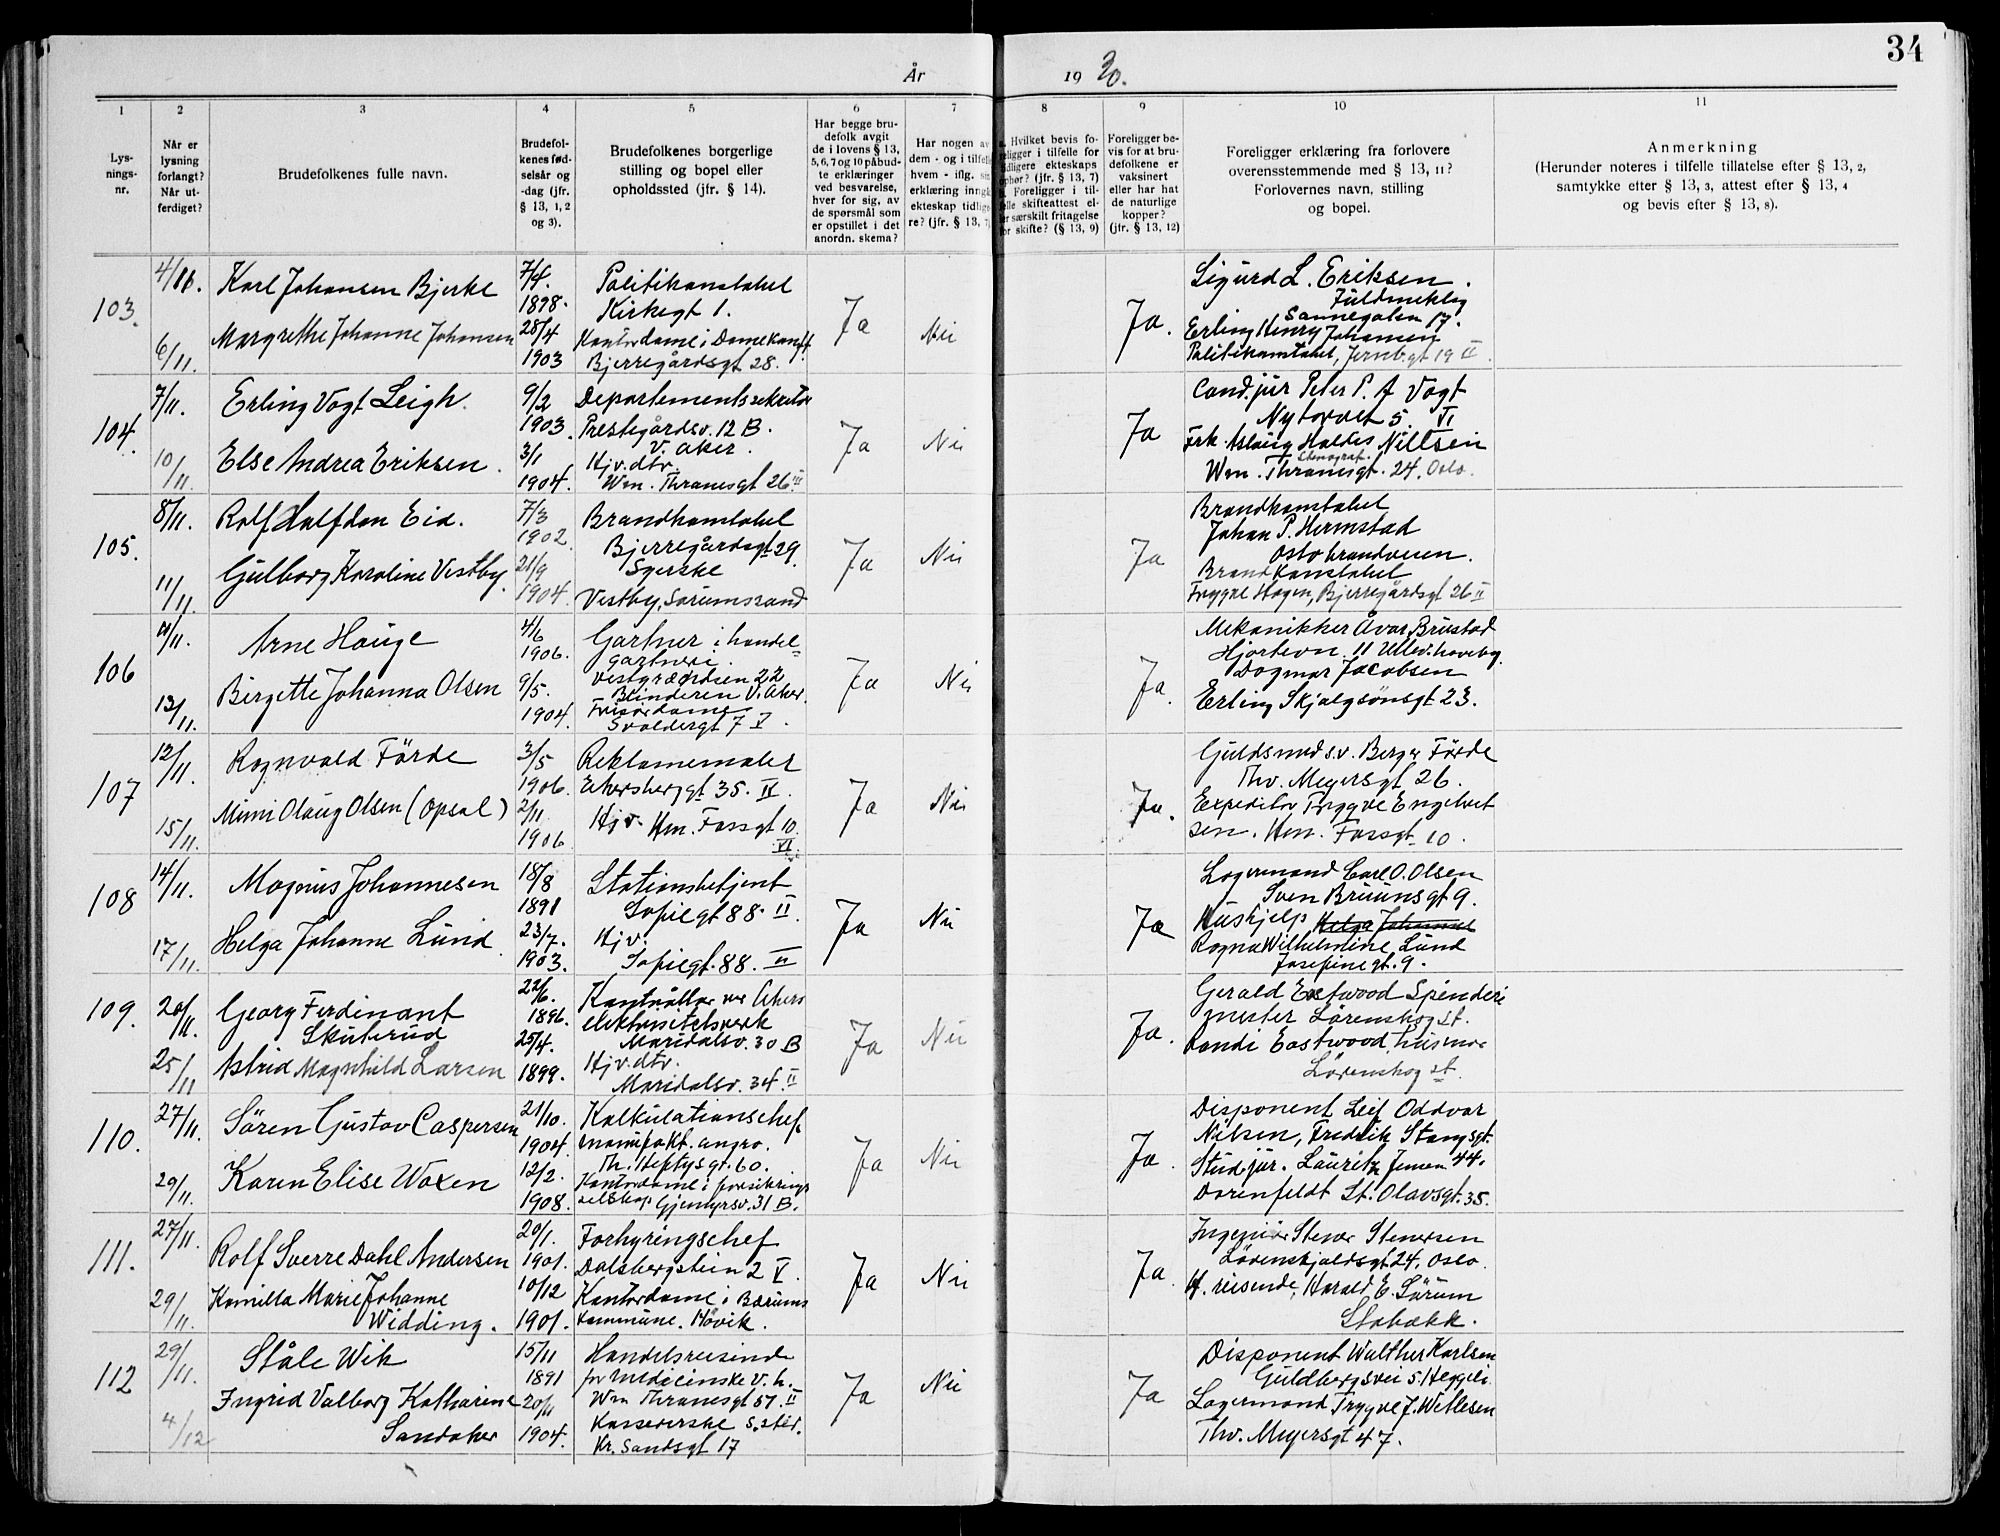 34
År 1930.
1 2 3 4 5 6 7 8 9 10 11
Lys-
nings-
nr.
Når er
lysning
forlangt?
Når ut-
ferdiget?
Brudefolkenes fulle navn.
Brudefol-
kenes fød-
selsår og
-dag (jfr.
§ 13, 1, 2
og 3).
Brudefolkenes borgerlige
stilling og bopel eller
opholdssted (jfr. § 14).
Har begge bru-
defolk avgit
de i lovens § 13,
5, 6, 7 og 10 påbud-
te erklæringer
ved besvarelse,
hver for sig, av
de spørsmål som
er opstillet i det
anordn. skema?
Har nogen av
dem - og i tilfelle
hvem - iflg.
erklæring inngå
ekteskap tidlige-
re? (jfr. § 13, 7)
Hvilket bevis fo-
religger i tilfelle for
tidligere ekteskaps
ophør? (jfr. § 13, 7)
Foreligger i til-
felle skifteattest el-
ler særskilt fritagelse
for skifte? (§ 13, 9)
Foreligger be-
vis for at bru-
defolkene er
vaksinert
eller har hat
de naturlige
kopper?
(jfr. § 13, 12)
Foreligger erklæring fra forlovere
overensstemmende med § 13, 11?
Forlovernes navn, stilling
og bopel.
Anmerkning
(Herunder noteres i tilfelle tillatelse efter § 13, 2,
samtykke efter § 13, 3, attest efter § 13, 4
og bevis efter § 13, 8).
103.
4/11.
6/11.
Karl Johansen Bjerke
Margrethe Johanne Johansen
7/4.
1898.
28/4
1903
Politikonstabel
Kirkegt 1.
Kontordame i Damekonf.
Bjerregårdsgt 28.
Ja
Nei
Ja.
Sigurd L. Eriksen.
Fuldmektig
Sannegaten 17.
Erling Henry Johansen
Politikonstabel, Jernb.gt 19 II.
104.
7/11.
10/11.
Erling Vogt Leigh.
Else Andrea Eriksen.
9/2
1903.
3/1
1904.
Departementssekretær
Prestegårdsv. 12 B.
V. Aker.
Hjv. dtr.
Wm. Thranesgt 26 III
Ja
Nei
Ja
Cand. jur Peter P. A Vogt
Nytorvet 5. VI
Frk Aslaug Haldis Nilsen
Stenograf.
Wm. Thranesgt. 24. Oslo.
105.
8/11.
11/11.
Rolf Halfdan Eid.
Gulborg Karoline Vestby.
7/3
1902.
21/9
1904.
Brandkonstabel
Bjerregårdsgt 29.
Syerske
Vestby, Sørumsand
Ja
Nei
Ja
Brandkonstabel
Johan P. Hermstad
Oslo brandvesen.
Brandkonstabel
Trygve Hagen, Bjerregårdsgt 26 II
106
11/11.
13/11.
Arne Hauge
Birgitte Johanna Olsen
4/6
1906.
9/5.
1904.
Gartner i handel-
gartneri.
Vestgrændsen 22
Blinderen V. Aker.
Frisørdame
Svoldergt 7 V.
Ja
Nei
Ja.
Mekanikker Avar Brustad
Hjortevn. 11 Ullev. haveby.
Dagmar Jacobsen
Erling Skjalgsönsgt 23.
107
12/11.
15/11.
Ragnvald Förde
Mimi Olaug Olsen (Opsal)
3/5
1906.
2/11
1906
Reklamemaler
Ekersberggt 35. II.
Hjv. Hm. Fossgt 10.
VI.
Ja
Nei
Ja.
Guldsmedsv. Berger Förde
Thv. Meyersgt 26.
Expeditør Trygve Engelvet
sen. Hm. Fossgt 10.
108
14/11.
17/11.
Magnus Johannesen
Helga Johanne Lund.
18/8
1891
23/7.
1903.
Stationsbetjent
Sofiegt 88. II.
Hjv.
Sofiegt. 88. II
Ja
Nei
Ja
Lagermand Carl O. Olsen
Sven Bruunsgt 9.
Hushjelp Helga Johanne
Ragna Wilhelmine Lund
Josefinegt. 9.
109.
20/11.
25/11
Georg Ferdinant
Skuterud
Astrid Magnhild Larsen
22/6.
1896.
25/4.
1899.
Kontrollør ver Akers
elektrisitetsverk
Maridalsv. 30 B
Hjv. dtr.
Maridalsv. 34. II
Ja
Nei
Ja.
Gerald Eastwood Spinderi
mester Lörenskog st.
Randi Eastwood, Husmor
Lörenskog st.
110.
27/11.
29/11.
Sören Gustav Caspersen
Karen Elise Woxen
21/10.
1904.
12/2.
1908.
Kalkulationschef
manufakt. angro.
Th. Heftysgt. 60.
Kontordame i forsikrings
selskap Gjemyrsv. 31 B.
Ja
Nei
Ja.
Disponent Leif Oddvar
Nilsen, Fredrik Stangsgt.
Stud. jur. Lauritz Jensen 44.
Dorenfeldt St. Olavsgt. 35.
111.
27/11.
29/11.
Rolf Sverre Dahl Andersen
Kamilla Marie Johanne
Widding.
20/1.
1901.
10/12
1901.
Forhyringschef
Dalsbergstien 2 V.
Kontordame i Bærums
kommune. Hövik.
Ja
Nei
Ja.
Ingeniør Stener Stenersen
Lövenskjoldsgt 24. Oslo.
H. reisende, Harald E. Sörum
Stabækk.
112
29/11.
4/12
Ståle Wik
Ingrid Valborg Katharine
Sandaker
15/11
1891
20/11
1904.
Handelsreisende
for medicinske v. h.
Wm Thranesgt 57. II
Kassererske s. sted.
Kr. Sandsgt 17
Ja
Nei
Ja
Disponent Walther Karlsen
Guldbergsvei 5. Heggeli
Lagermand Trygve J. Wetlesen
Thv. Meyersgt 47.